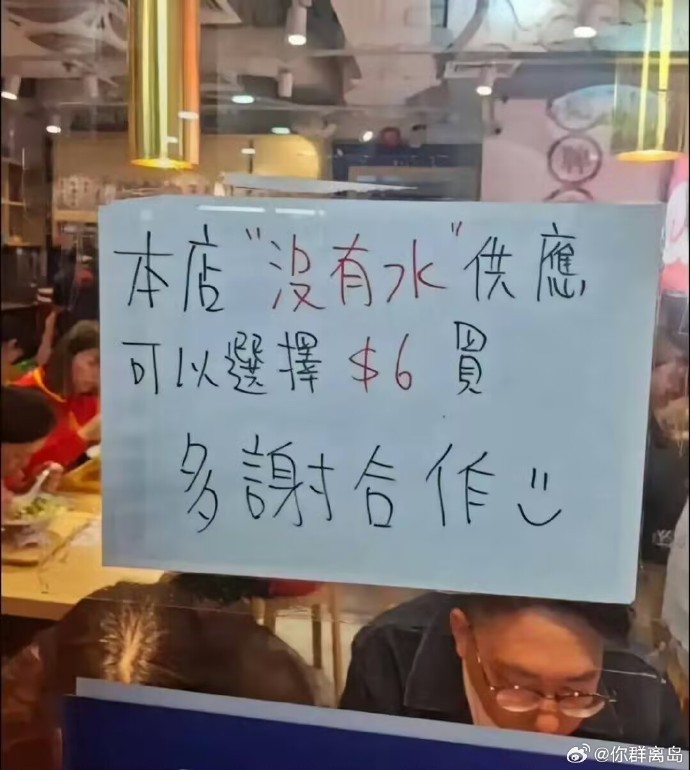 本店"没有水"供應
可以選擇 $6 買
多謝合作
@你群离岛